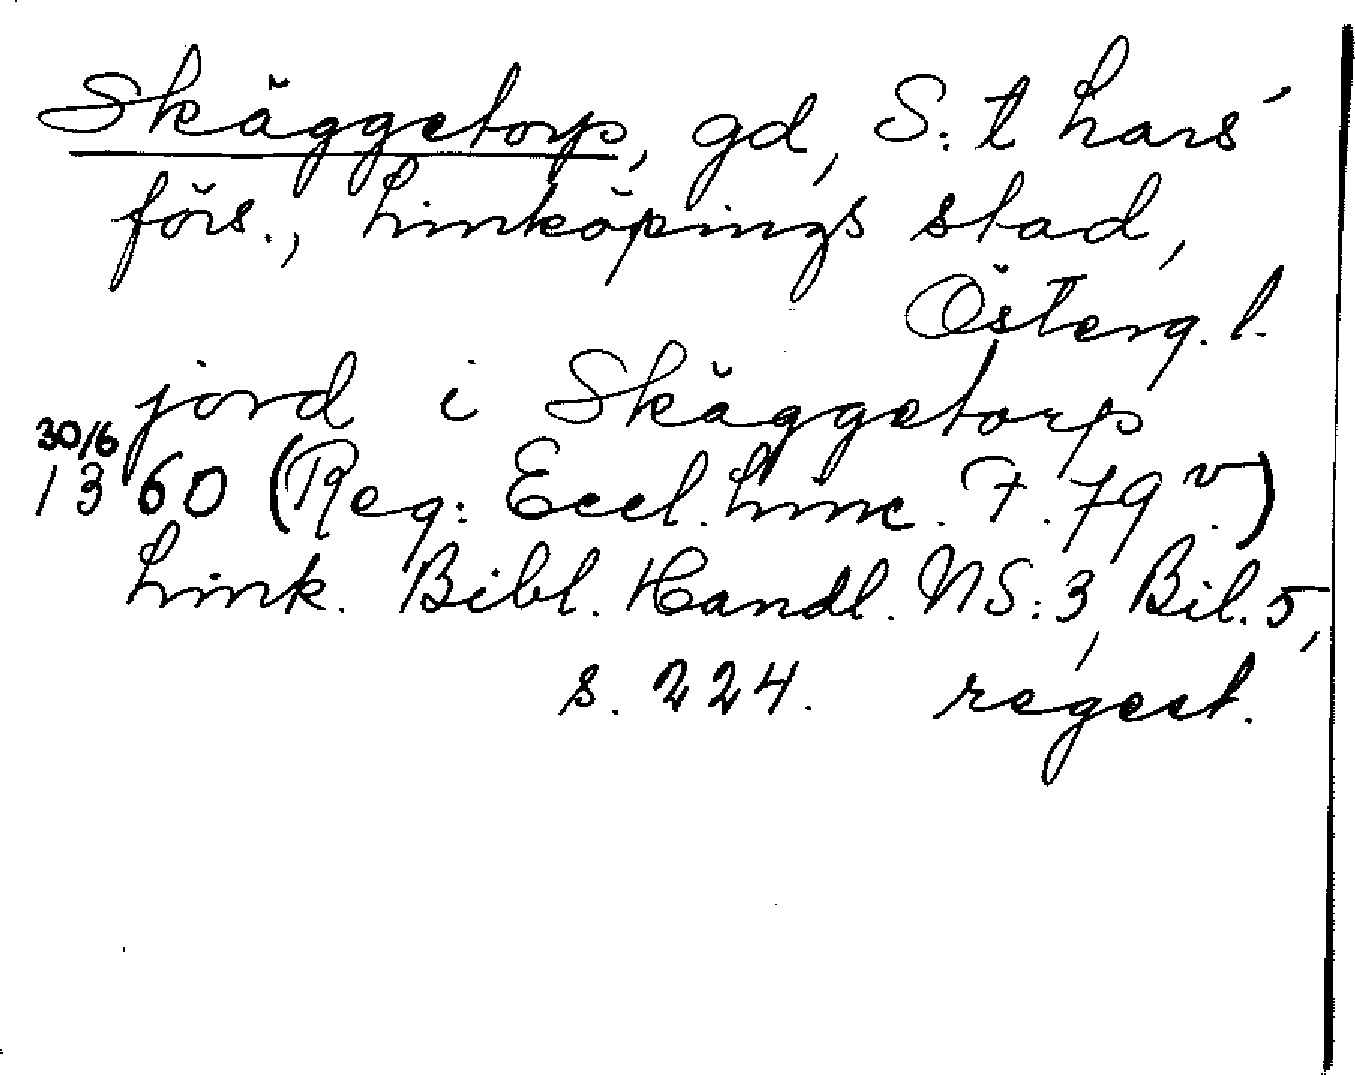 Skäggetorp, gd, S:t Lars'
förs., Linköpings stad,
Österg. l.
jord i Skäggetorp
30/6
1360 (Reg: Eccl. Linc. F. 79 v.)
Link. Bibl. Handl. NS:3, Bil. 5,
s. 224. regest.